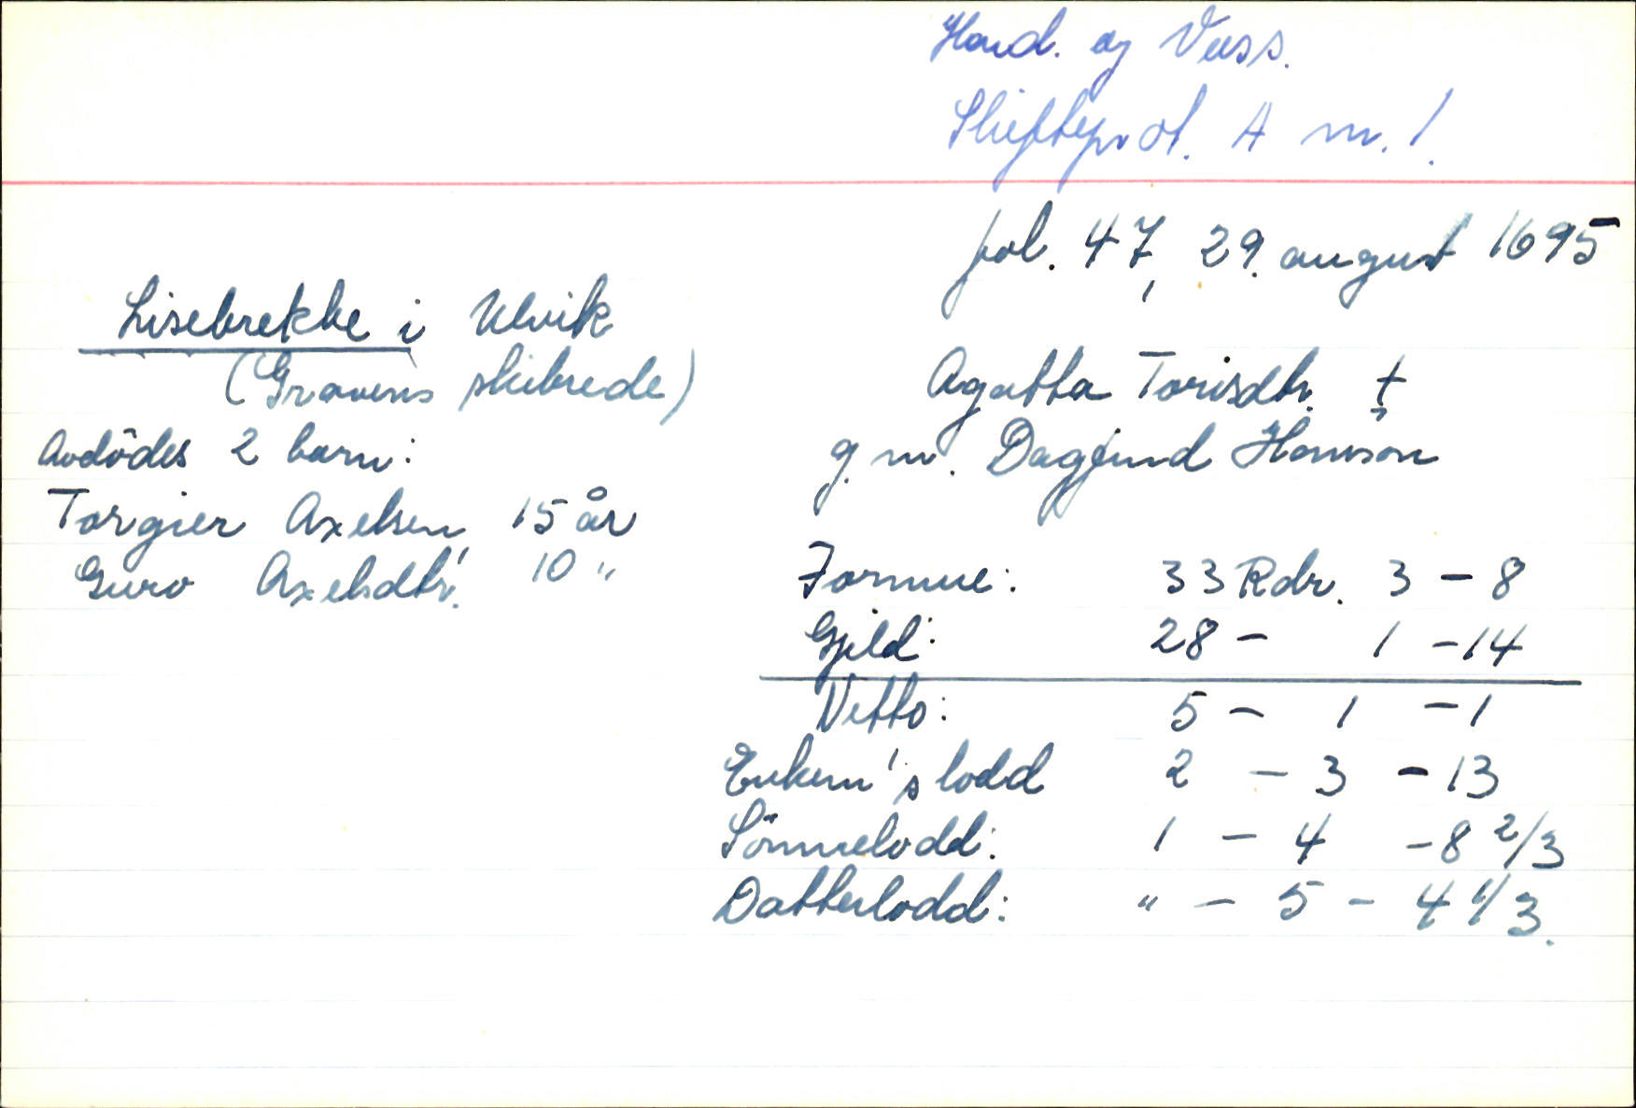 Hard. og Voss.
Skifteprot. A nr. 1.
fol. 47, 29. august 1695
Lisebrekke i Ulvik
(Gravens skibrede)
Agatta Torisdtr. †
g. m. Dagfind Hanson
Avdødes 2 barn:
Torgier Axelsen 15 år
Guro Axelsdtr. 10 "
Formue: 33 Rdr. 3 - 8
Gjeld: 28 - 1 - 14
Netto: 5 - 1 - 1
Enkem's lodd 2 - 3 - 13
Sönnelodd: 1 - 4 - 8 2/3
Datterlodd: " - 5 - 4 1/3.